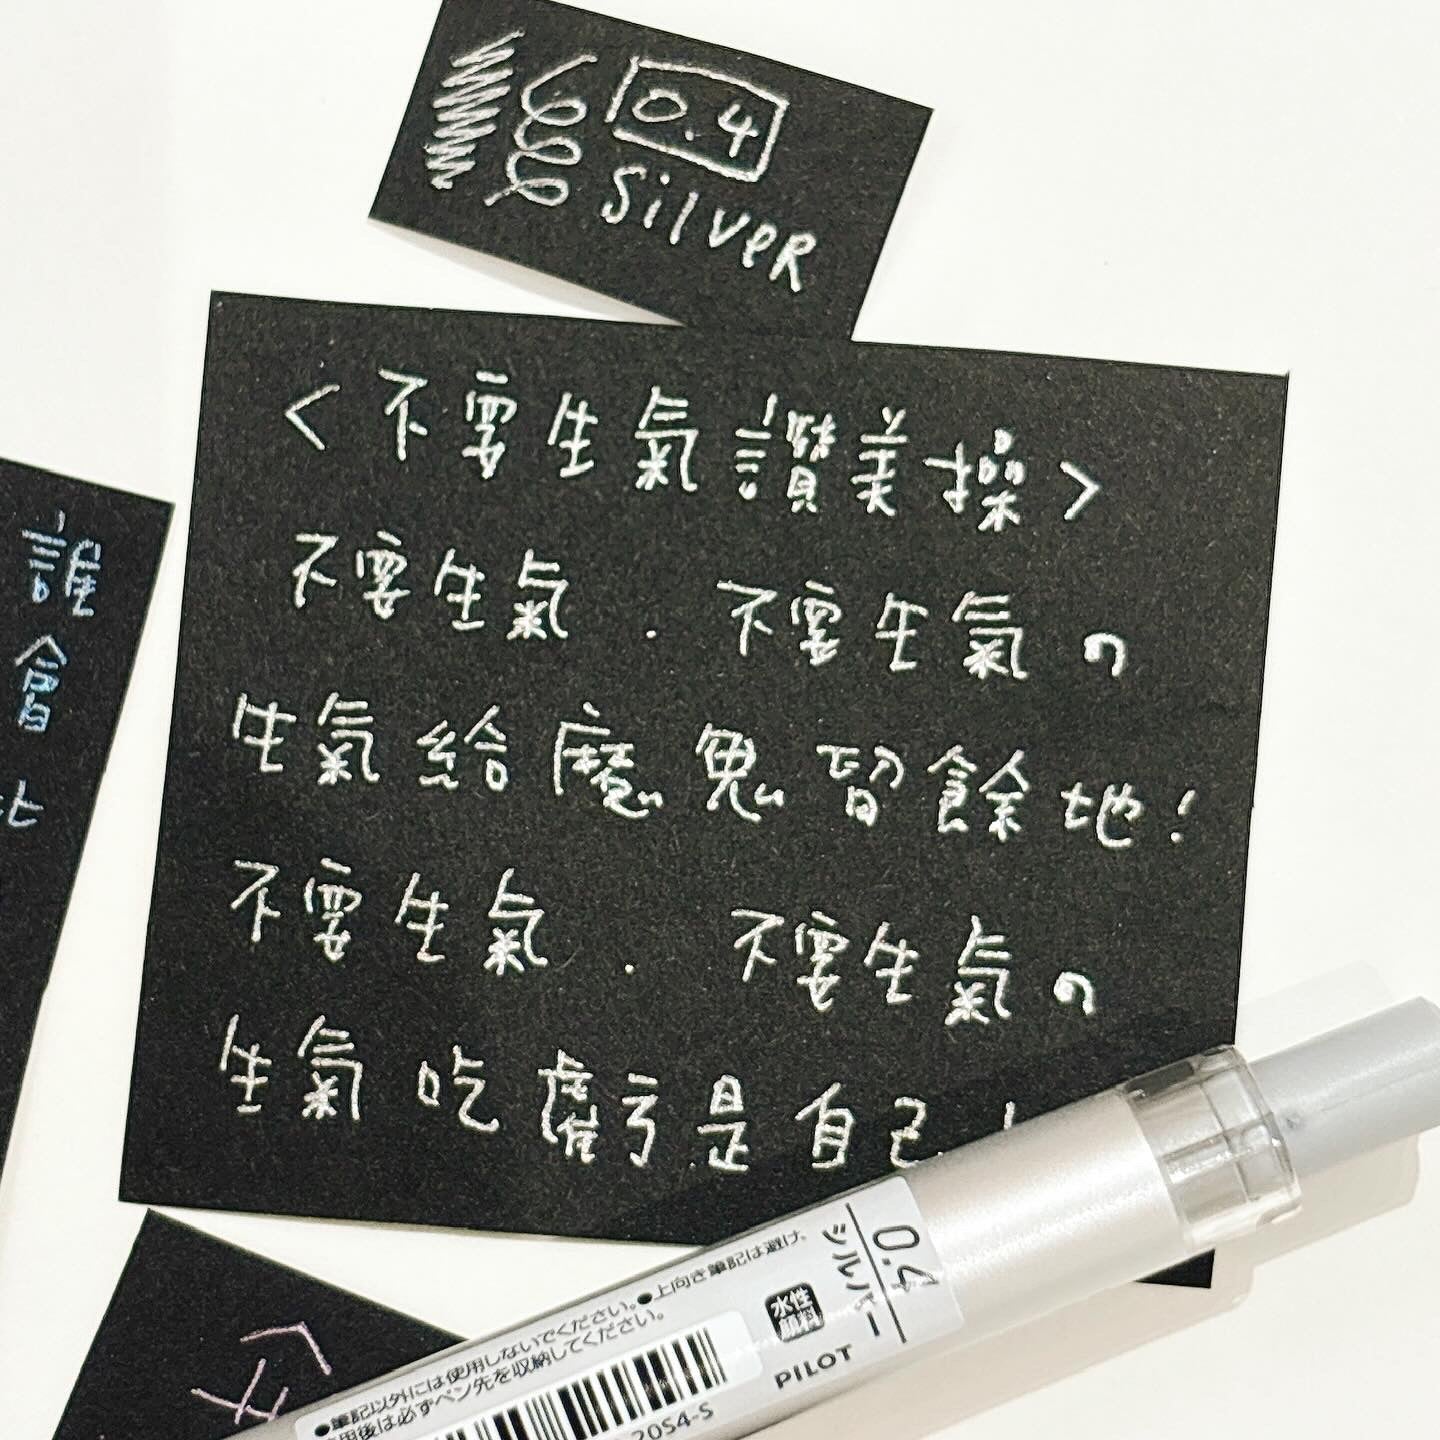 0.4
Silver
<不要生氣讚美操>
不要生氣．不要生氣の
生氣給魔鬼留餘地！
不要生氣．不要生氣の
生氣吃虧是自己！
誰
會
0.4
シルバー
水性
顔料
PILOT
●筆記以外には使用しないでください。●上向き筆記は避け、
用後は必ずペン先を収納してください。
20S4-S